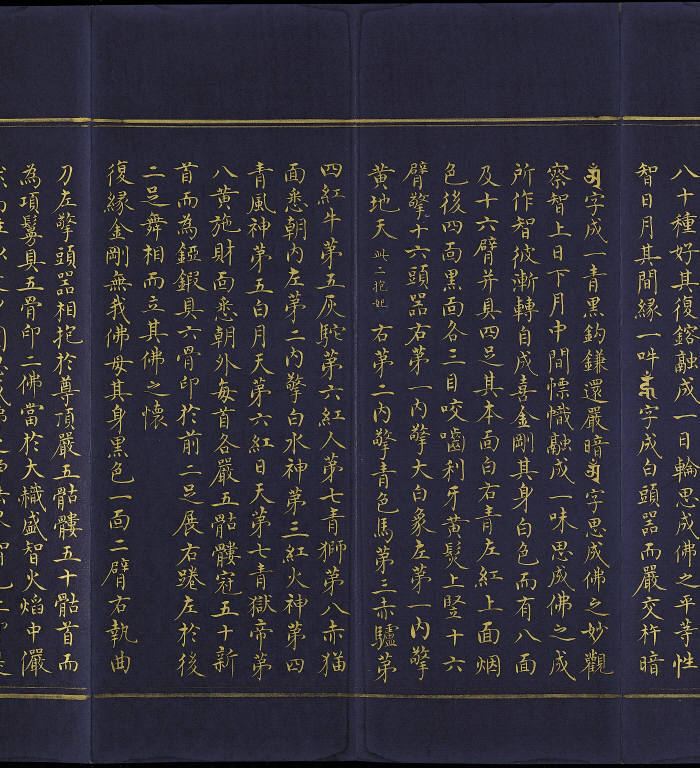 八十種好其復鎔融成一日輪思成佛之平等性
智日月其間緣一吽字成白頭器而嚴交杵暗
字成一青黑鈎鎌還嚴暗字思成佛之妙觀
察智上日下月中間慓幟融成一味思成佛之成
所作智彼漸轉自成喜金剛其身白色而有八面
及十六臂并具四足其本面白右青左紅上面烟
色後四面黑面各三目咬嚙利牙黃髮上竪十六
臂擎十六頭器右第一內擎大白象左第一內擎
黃地天此二抱妃右第二內擎青色馬第三赤驢第
四紅牛第五灰駝第六紅人第七青獅第八赤猫
面悉朝內左第二內擎白水神第三紅火神第四
青風神第五白月天第六紅日天第七青獄帝第
八黃施財面悉朝外每首各嚴五骷髏冠五十新
首而為鎠鍜具六骨印於前二足展右踡左於後
二足舞相而立其佛之懷
復緣金剛無我佛母其身黑色一面二臂右執曲
刀左擎頭器相抱於尊頂嚴五骷髏五十骷首而
為項鬘具五骨印二佛當於大熾盛智火焰中儼